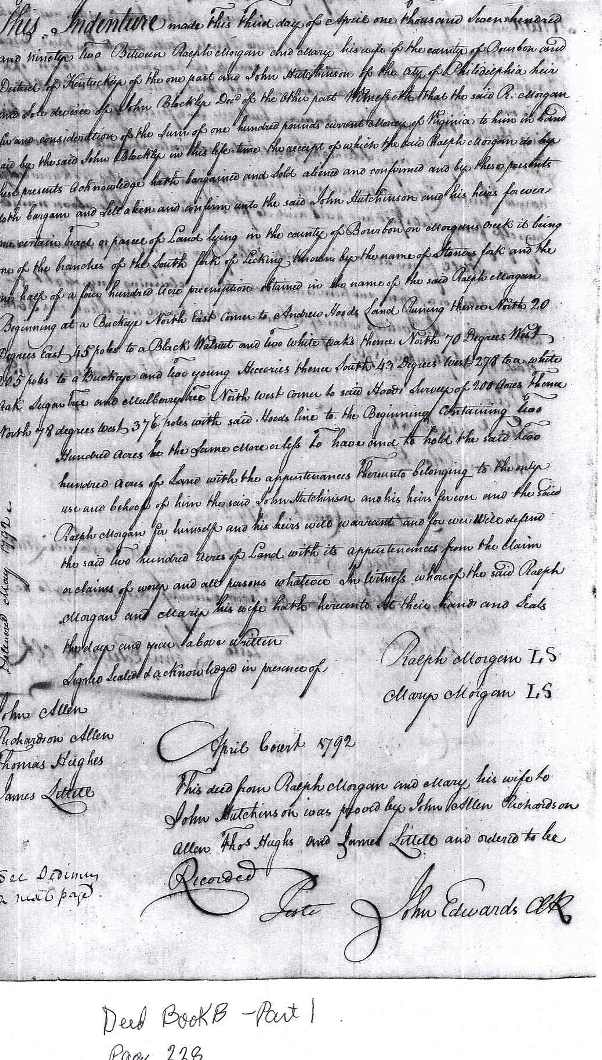 This Indenture made this third day of April one thousand Seven hundred
and ninety two Between Ralph Morgan and Mary his wife of the county of Bourbon and
District of Kentuckey of the one part and John Hutchinson of the City of Philidelphia heir
and Sole devisee of John Blackly Decd of the other part Witnesseth that the said R. Morgan
for and consideration of the Sum of one hundred pounds current Money of Virginia to him in hand
paid by the said John Blackly in his life time the receipt of which the said Ralph Morgan do by
these presents acknowledge hath bargained and Sold aliened and confirmed and by these presents
doth bargain and Sell alien and confirm unto the said John Hutchinson and his heirs forever
one certain tract or parcel of Land lying in the county of Bourbon on Morgans Creek it being
one of the branches of the South fork of Licking known by the name of Stoners fork and the
one half of a four hundred acre preemption obtained in the name of the said Ralph Morgan
Beginning at a Buckeye North East corner to Andrew Hoods Land Runing thence North 20
Degrees East 45 poles to a Black Walnut and two white oaks thence North 70 Degrees West
205 poles to a Buckeye and two young Heccories thence South 43 Degrees West 278 to a white
oak Sugar tree and Mulbury tree North west corner to said Hoods Survey of 200 Acres thence
North 78 degrees west 376 poles with said Hoods line to the Beginning Containing Two
Hundred Acres be the Same More or less To have and to hold the said Two
hundred acres of Land with the appurtenances thereunto belonging to the only
use and behoof of him the said John Hutchinson and his heirs forever and the said
Ralph Morgan for himself and his heirs will warrant and forever Will defend
the said two hundred Acres of Land with its appurtenances from the Claim
or claims of every and all persons whatever In Witness whereof the said Ralph
Morgan and Mary his wife hath hereunto Set their hands and Seals
the day and year above written
Signed Sealed & acknowledged in presence of
Ralph Morgan LS
Mary Morgan LS
John Allen
Richardson Allen
Thomas Hughes
James Littell
April Court 1792
This deed from Ralph Morgan and Mary his wife to
John Hutchinson was proved by John Allen Richardson
Allen Thos Hughs and James Littell and ordered to be
Recorded
Teste John Edwards Clk
See Dedimus
next page
May 1792
Deed Book B - Part 1
Page 228